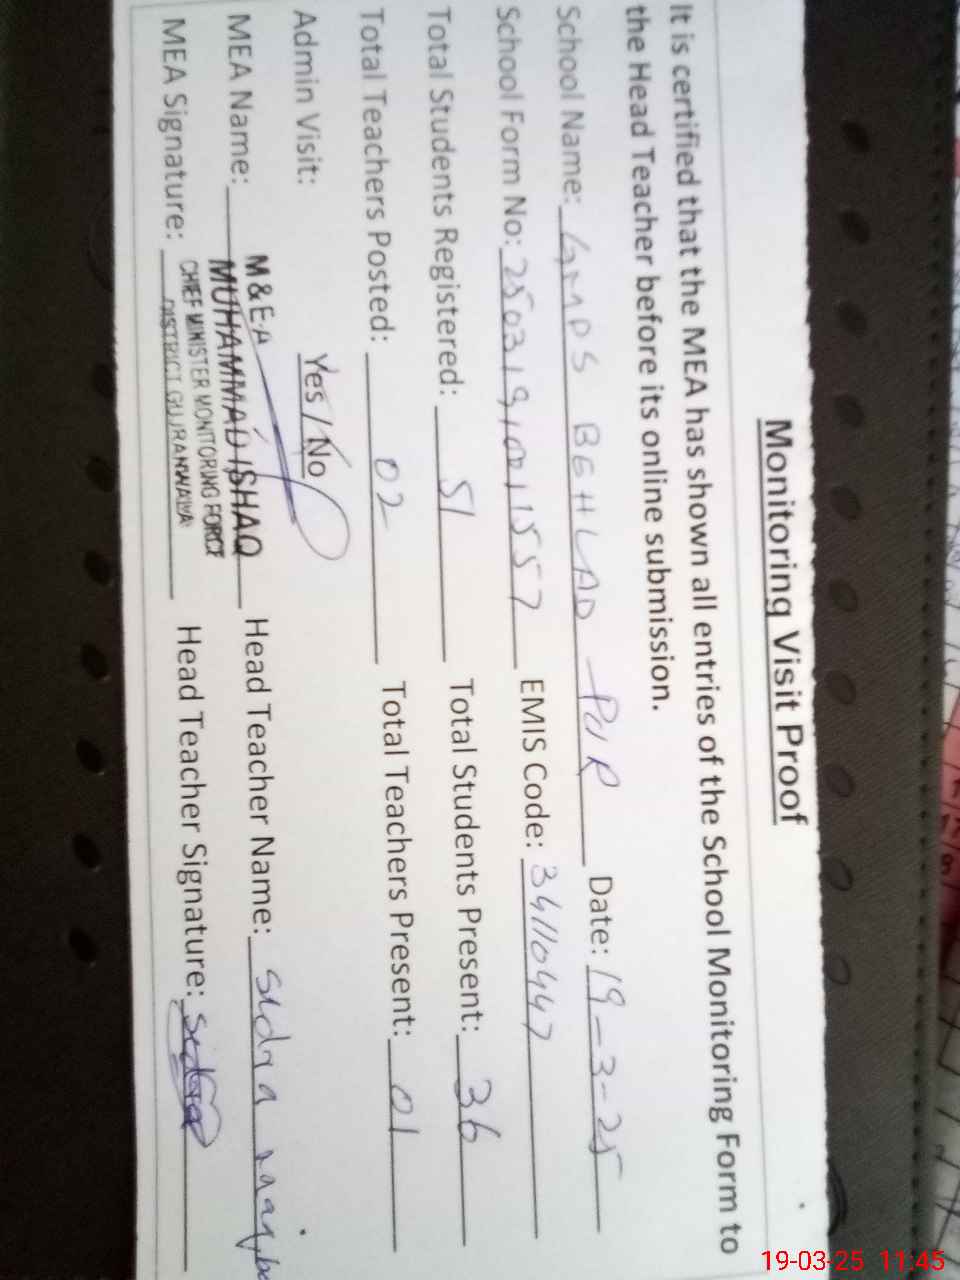 Monitoring Visit Proof
It is certified that the MEA has shown all entries of the School Monitoring Form to
the Head Teacher before its online submission.
School Name: GMPS BEHLAD PUR Date: 19-3-25
School Form No: EMIS Code: 34110447
Total Students Registered: 51 Total Students Present: 36
Total Teachers Posted: 02 Total Teachers Present: 01
Admin Visit: Yes / No
M & E.A
MEA Name: MUHAMMAD ISHAQ Head Teacher Name: Sidra
CHIEF MINISTER MONITORING FORCE
MEA Signature: DISTRICT GUJRANWALA Head Teacher Signature: Sidra
19-03-25 11:45